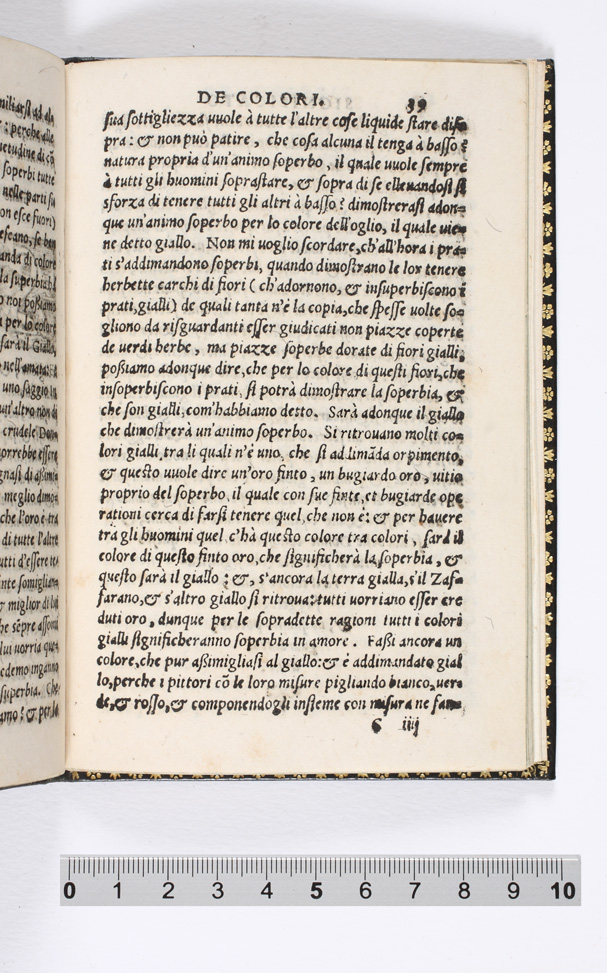 DE COLORI. 39
sua sottigliezza vuole à tutte l'altre cose liquide stare diso=
pra: & non può patire, che cosa alcuna il tenga à basso ?
natura propria d'un'animo soperbo, il quale vuole sempre
à tutti gli huomini soprastare, & sopra di se ellevandosi si
sforza di tenere tutti gli altri à basso ? dimostrerasi adon=
que un'animo soperbo per lo colore dell'oglio, il quale vie=
ne detto giallo. Non mi voglio scordare, ch'all'hora i pra=
ti s'addimandono soperbi, quando dimostrano le lor tenere
herbette carchi di fiori ( ch'adornono, & insuperbiscono i
prati, gialli) de quali tanta n'è la copia, che spesse volte so=
gliono da risguardanti esser giudicati non piazze coperte
de verdi herbe, ma piazze soperbe dorate di fiori gialli,
possiamo adonque dire, che per lo colore di questi fiori, che
insoperbiscono i prati, si potrà dimostrare la soperbia, &
che son gialli, com'habbiamo detto. Sarà adonque il giallo
che dimostrerà un'animo soperbo. Si ritrovano molti co=
lori gialli, tra li quali n'è uno, che si ad limãda orpimento,
& questo vuole dire un'oro finto, un bugiardo oro, vitio
proprio del soperbo, il quale con sue finte, et bugiarde ope
rationi cerca di farsi tenere quel, che non è: & per havere
trà gli huomini quel, c'hà questo colore tra colori, sarà il
colore di questo finto oro, che significherà la soperbia, &
questo sarà il giallo : &, s'ancora la terra gialla, s'il Zaf=
farano, & s'altro giallo si ritrova: tutti vorriano esser cre
duti oro, dunque per le sopradette ragioni tutti i colori
gialli significheranno soperbia in amore. Fassi ancora un
colore, che pur assimigliasi al giallo: & è addimandato gial
lo, perche i pittori cõ le loro misure pigliando bianco, ver=
de, & rosso, & componendogli insieme con misura ne fan=
6 iiij
0 1 2 3 4 5 6 7 8 9 10